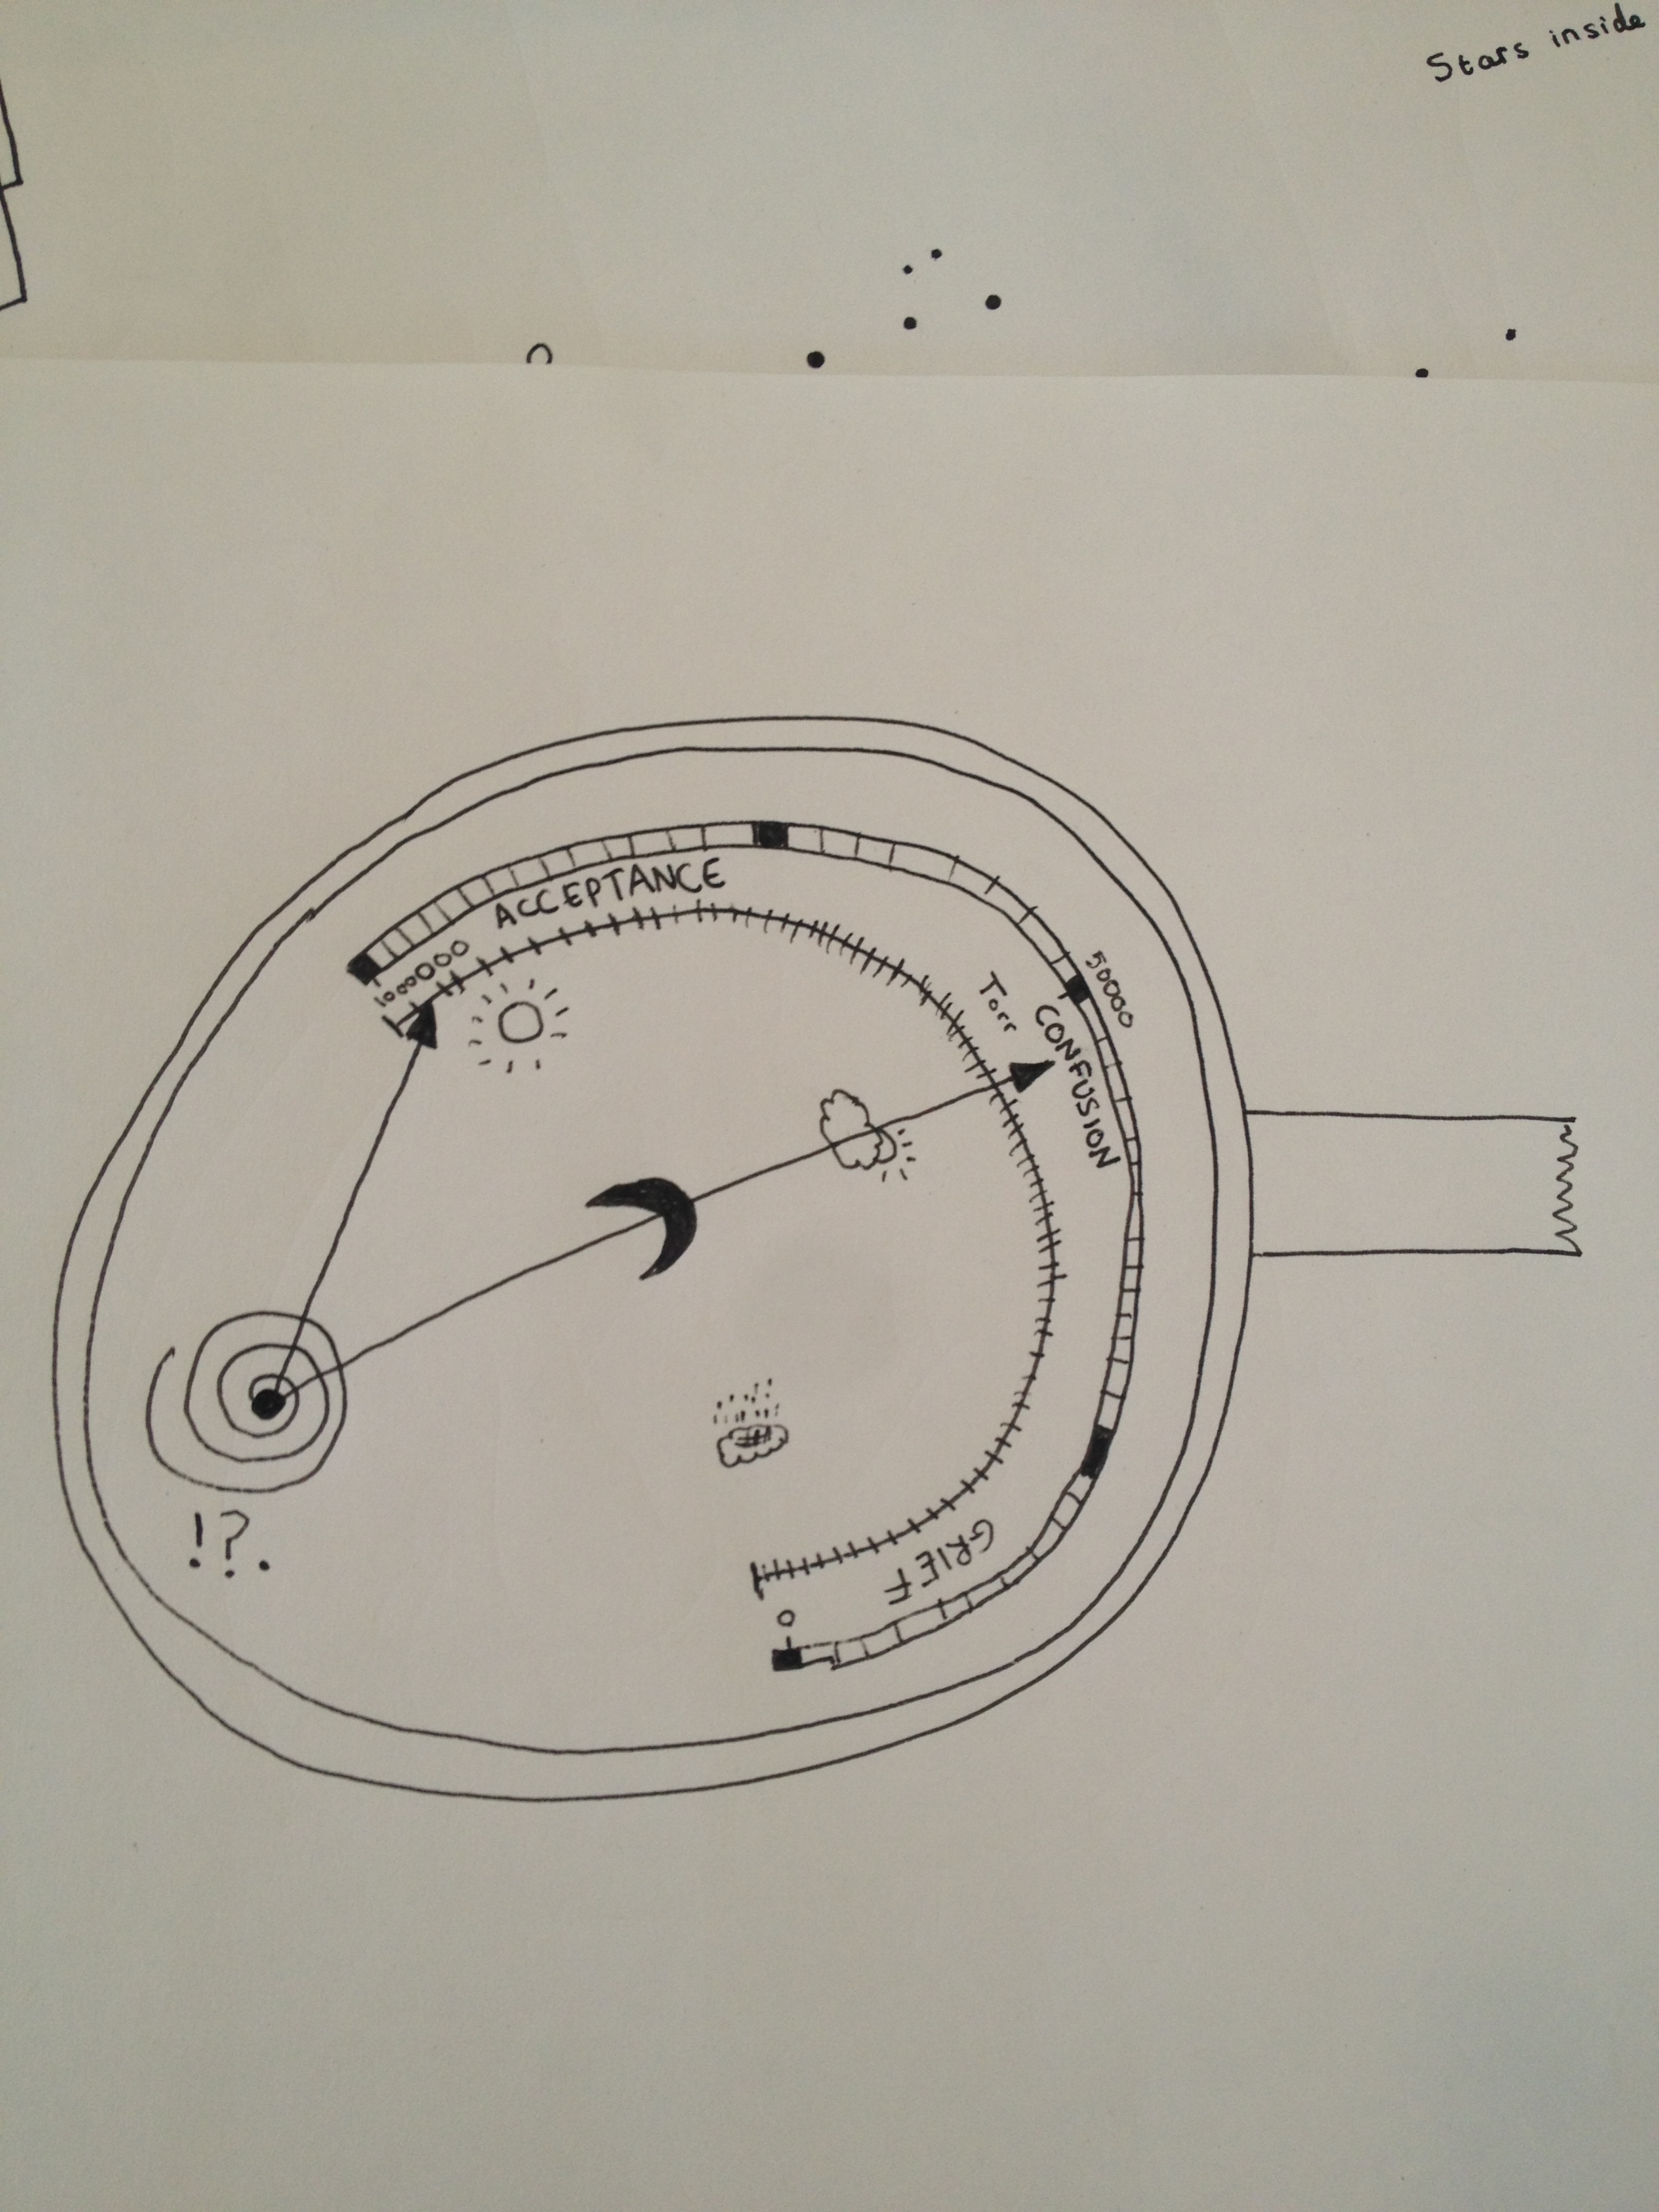 Stars inside
ACCEPTANCE
1000000
50000
Torr
CONFUSION
GRIEF
0
!?.